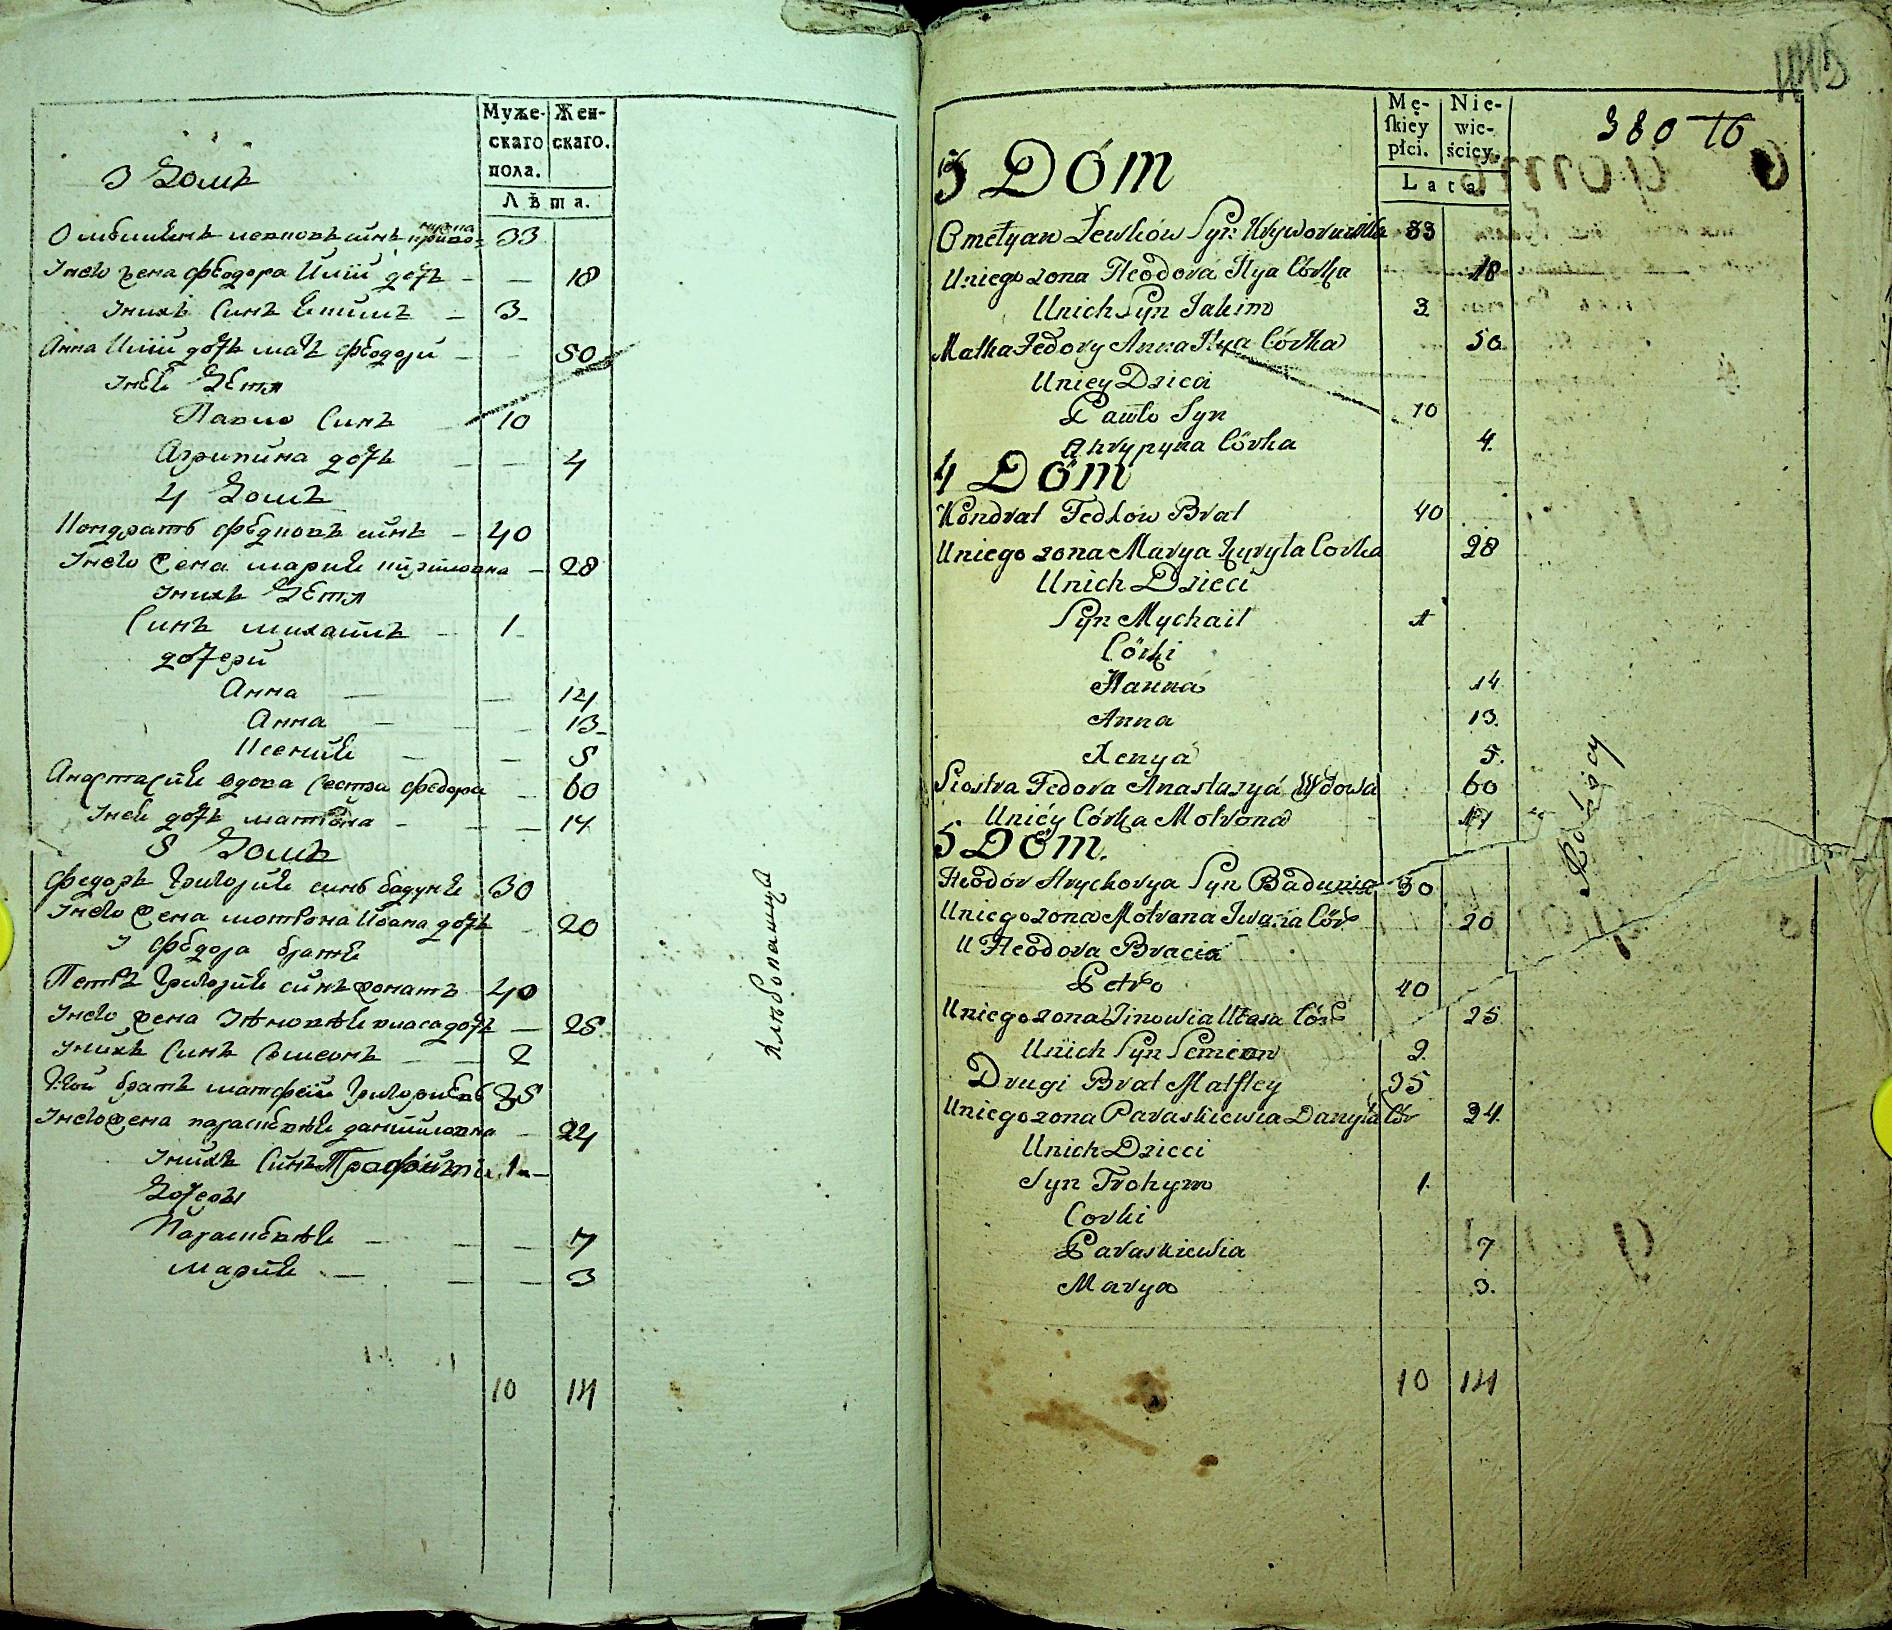 Муже-
скаго
пола.
Жен-
скаго.
Лѣта.
3 Домъ
Омелианъ левковъ синъ криво
33
Унего жена феодора Илiи дочъ - — 18
Унихъ Синъ Екимъ — 3
Анна Илiи дочъ мат феодори — — 50
Унеи Дети
Павло Синъ — 10
Агрипина дочъ — — 4
4 Домъ
Кондратъ федковъ синъ — 40
Унего жена мария кириловна — 28
Унихъ Дети
Синъ михаилъ — 1
дочери
Анна — — 14
Анна — — 13
Ксения — — 5
Анастасия вдова сестра федора — 60
Унеи дочъ матрона — — 14
5 Домъ
федоръ григория синъ бадуня 30
Унего жена мотрона Ивана дочъ — 20
У федора братя
Петръ григория синъ жонатъ 40
Унего жена Зѣновѣя власа дочъ — 25
Унихъ Синъ Семеонъ — 2
брать матфеи григориевъ 35
Унего жена парасковѣя даниловна — 24
Унихъ Синъ 1
Дочеры
Парасковѣя — — 7
мария — — 3
10 14
хлѣбопашцы
Mę-
skiey
płci.
Nie-
wie-
ściey.
Lata.
380
3 Dóm
Omełyan Lewków Syn 33
Uniego zona Heodora Ilya Córka 18
Unich Syn Jakim 3
Matka Fedory Anna Ilya Córka 50
Uniey Dzieci
Pawło Syn 10
Ahrypyna Córka 4
4 Dóm
Kondrat Fedków Brat 40
Uniego zona Marya Kyryła Corka 28
Unich Dzieci
Syn Mychail 1
Córki
Hanna 14
Anna 13.
Xenya 5.
Siostra Fedora Anastazya Wdowa 60
Uniéy Córka Motrona 14
5 Dóm.
Heodór Hryhorya Syn Badunia 30
Uniego zona Motrona Iwana Cór 20
U Heodora Bracia
Petro 40
Uniego zona Zinowia Ułasa Cór 25
Unich Syn Semeon 2.
Drugi Brat Matftey 35
Uniego zona Paraskiewia Danyła Cór 24.
Unich Dzieci
Syn Trohym 1.
Corki
Paraskiewia 7
Marya 3.
10 14
Rolnicy